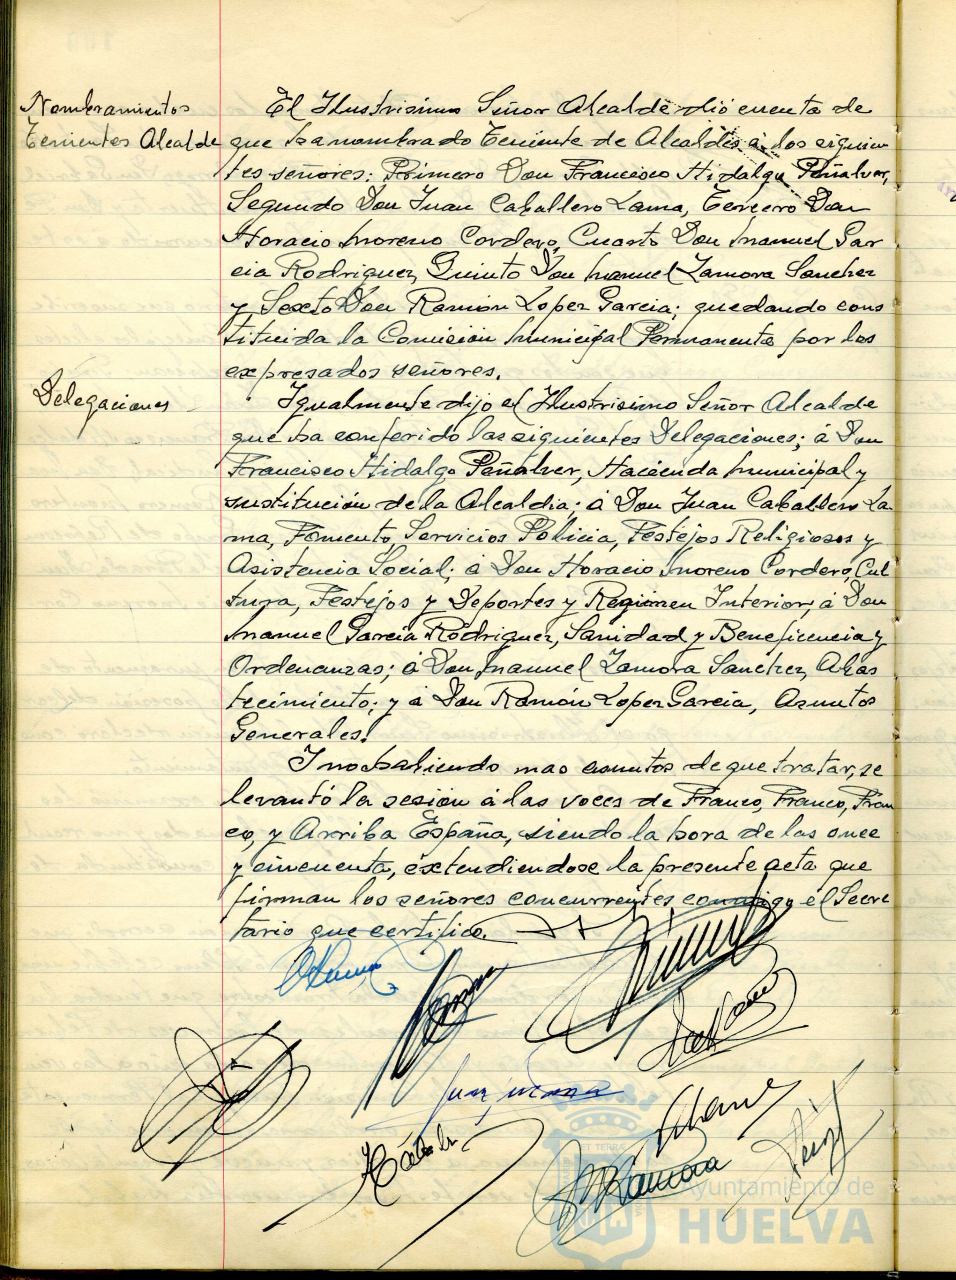 Nombramientos
Tenientes Alcalde
El Ilustrisimo Señor Alcalde dió cuenta de
que ha nombrado Teniente de Alcaldes á los siguien
tes señores: Primero Don Francisco Hidalgo Peñalver,
Segundo Don Juan Caballero Lama, Tercero Don
Horacio Moreno Cordero, Cuarto Don Manuel Gar
cia Rodriguez, Quinto Don Manuel Zamora Sanchez
y Sexto Don Ramón Lopez Garcia; quedando cons
tituida la Comision Municipal Permanente por los
expresados señores.
Delegaciones
Igualmente dijo el Ilustrisimo Señor Alcalde
que ha conferido las siguientes Delegaciones; á Don
Francisco Hidalgo Peñalver, Hacienda Municipal y
sustitución de la Alcaldia; á Don Juan Caballero La
ma, Fomento Servicios Policia, Festejos Religiosos y
Asistencia Social; á Don Horacio Moreno Cordero, Cul
tura, Festejos y Deportes y Regimen Interior; á Don
Manuel Garcia Rodriguez, Sanidad y Beneficencia y
Ordenanzas; á Don Manuel Zamora Sanchez, Abas
tecimiento; y á Don Ramón Lopez Garcia, Asuntos
Generales.
I no habiendo mas asuntos de que tratar, se
levantó la sesión á las voces de Franco, Franco, Fran
co, y Arriba España, siendo la hora de las once
y cincuenta, extendiendose la presente acta que
firman los señores concurrentes conmigo el Secre
tario que certifico.
Zamora
Ayuntamiento de
HUELVA